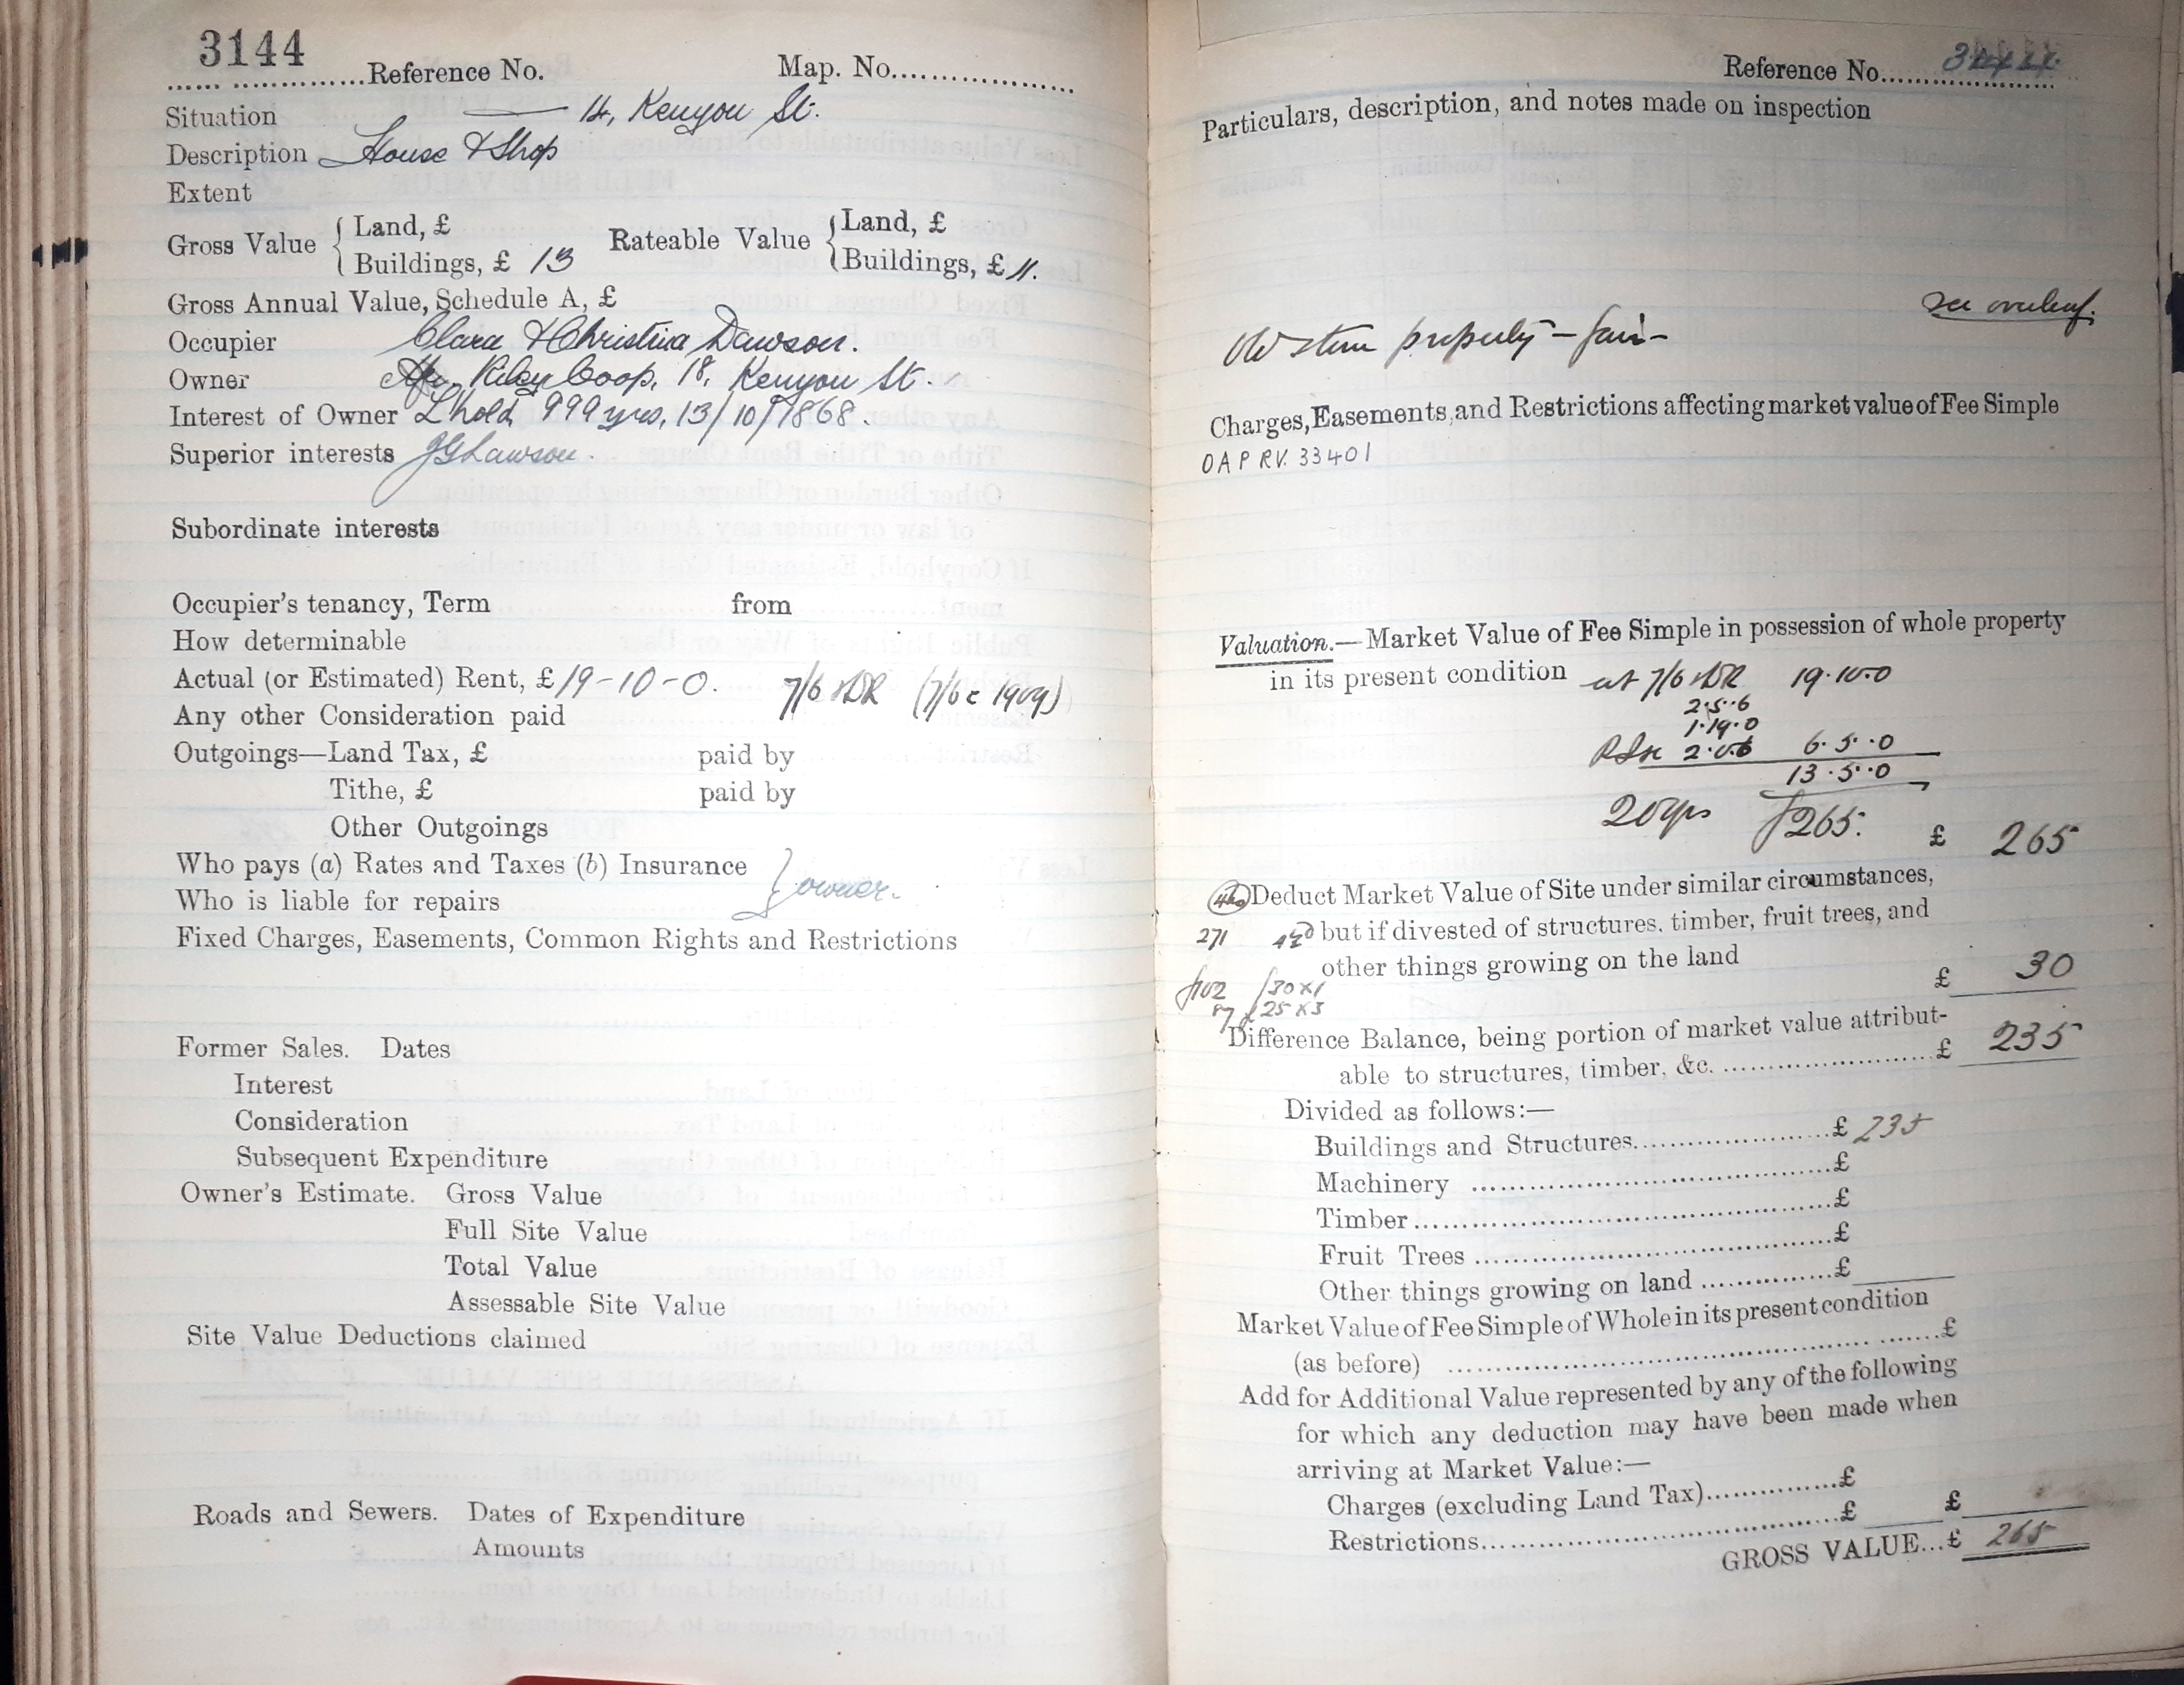 3144
Reference No. Map. No.
Situation — 14, Kenyon St.
Description House & Shop
Extent
Gross Value { Land, £ Rateable Value { Land, £
Buildings, £ 13 Buildings, £ 11.
Gross Annual Value, Schedule A, £
Occupier Clara & Christina Dawson.
Owner Riley Coop, 18, Kenyon St.
Interest of Owner L'hold, 999 yrs, 13/10/1868.
Superior interests J G Lawson.
Subordinate interests
Occupier's tenancy, Term from
How determinable
Actual (or Estimated) Rent, £ 19-10-0. 7/6 DR (7/6 c 1909)
Any other Consideration paid
Outgoings—Land Tax, £ paid by
Tithe, £ paid by
Other Outgoings
Who pays (a) Rates and Taxes (b) Insurance } owner.
Who is liable for repairs
Fixed Charges, Easements, Common Rights and Restrictions
Former Sales. Dates
Interest
Consideration
Subsequent Expenditure
Owner's Estimate. Gross Value
Full Site Value
Total Value
Assessable Site Value
Site Value Deductions claimed
Roads and Sewers. Dates of Expenditure
Amounts
Reference No.
Particulars, description, and notes made on inspection
see overleaf.
Old stone property — fair —
Charges, Easements, and Restrictions affecting market value of Fee Simple
O A P RV. 33401
Valuation.—Market Value of Fee Simple in possession of whole property
in its present condition at 7/6 DR 19.10.0
2.5.6
1.19.0
2.0.6 6.5.0
13.5.0
20 yrs £265. £ 265
Deduct Market Value of Site under similar circumstances,
271 but if divested of structures, timber, fruit trees, and
other things growing on the land £ 30
£102 /30 x 1
£25 x 3
Difference Balance, being portion of market value attribut-
able to structures, timber, &c. £ 235
Divided as follows:—
Buildings and Structures £ 235
Machinery £
Timber £
Fruit Trees £
Other things growing on land £
Market Value of Fee Simple of Whole in its present condition
(as before) £
Add for Additional Value represented by any of the following
for which any deduction may have been made when
arriving at Market Value:—
Charges (excluding Land Tax) £
Restrictions £ £
GROSS VALUE...£ 265